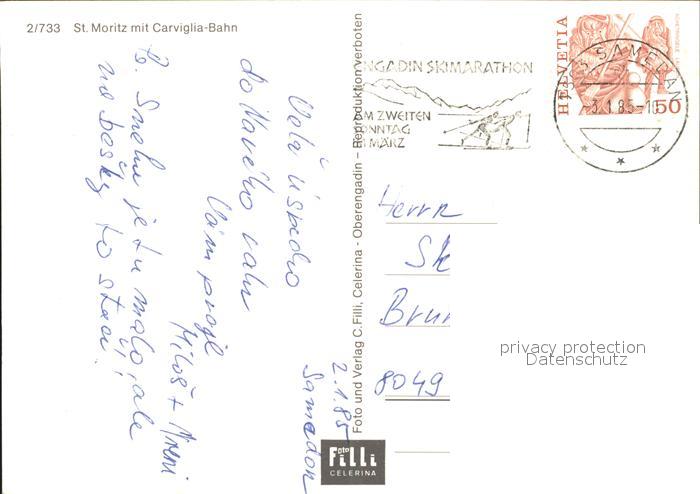 2/733 St. Moritz mit Carviglia-Bahn
Veľa úspecho
do Nového roku
Vám praje
Miloš + Ireni
Ps. Snehu je tu málo, ale
na bežky to stačí!
2.1.85
Samedan
Foto und Verlag C. Filli, Celerina - Oberengadin - Reproduktion verboten
Foto
Filli
CELERINA
ENGADIN SKIMARATHON
AM ZWEITEN
SONNTAG
IM MÄRZ
SAMEDAN
-3.1.85-10
HELVETIA
50
Herrn
Sk
Brun
8049
privacy protection
Datenschutz